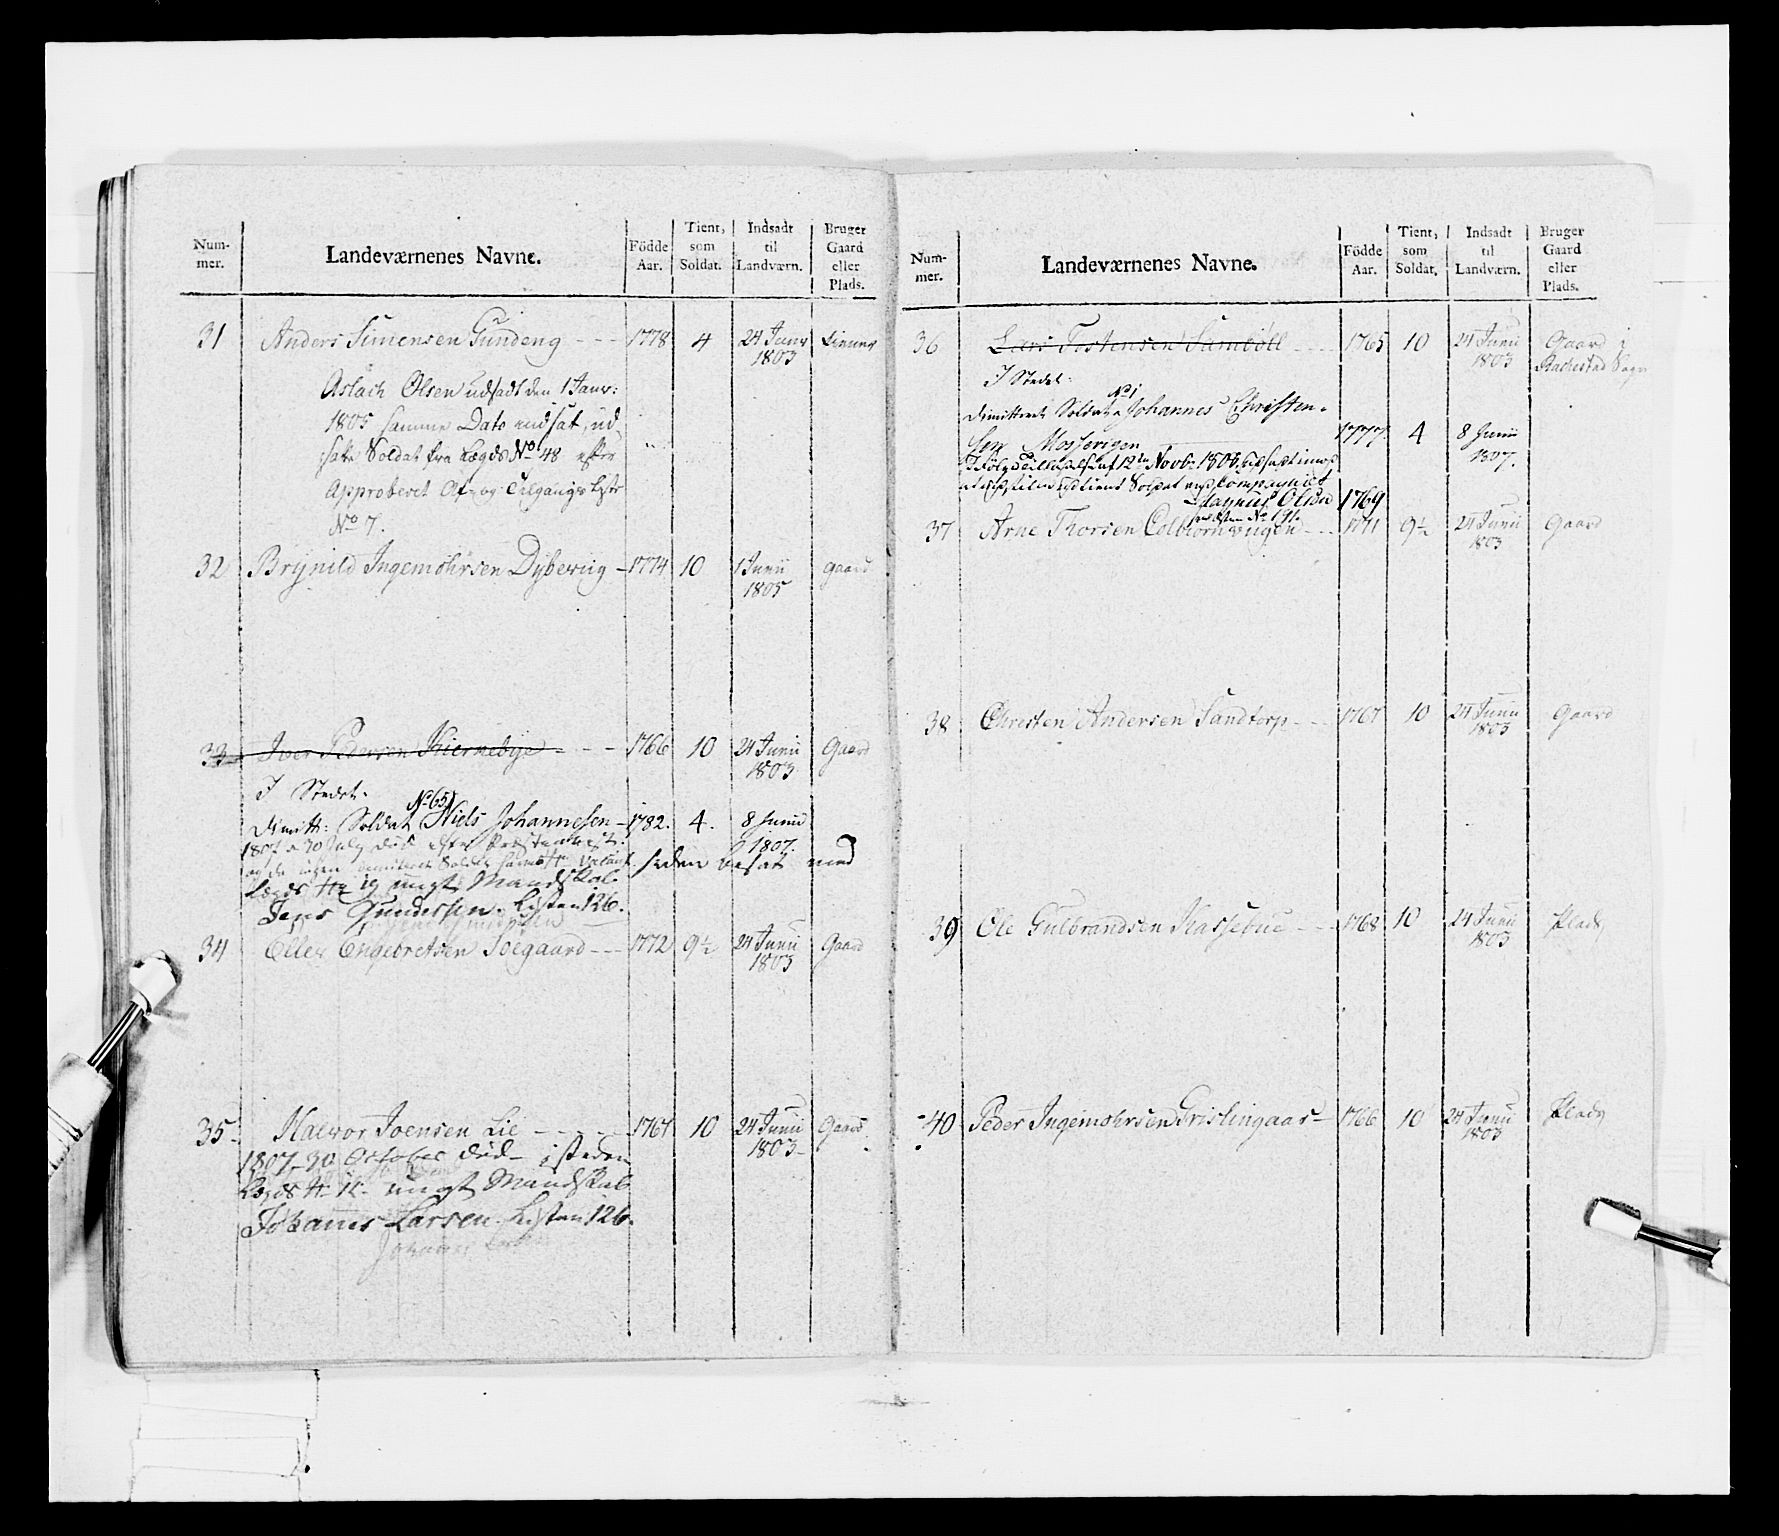 Num-
mer.
Landeværnenes Navne.
Födde
Aar.
Tient,
som
Soldat.
Indsadt
til
Landværn.
Bruger
Gaard
eller
Plads.
31 Anders Simensen Gundeng - - - 1778 4 24 Junii 1803
Aslach Olsen udsadt den 1 Janv:
1805 samme Dato indsat, ud-
satte Soldat fra Lægds No 48 efter
Approberet Af- og Tilgangs Liste
No 7.
32 Brynild Ingemohrsen Dybevig - 1774 10 1 Junii 1805 Gaard
33 Iver Pedersen Kiernebye - - - 1766 10 24 Junii 1803 Gaard
I Stedet:
No 65
Dimitt: Soldat Niels Johannesen - 1782. 4. 8 Junii 1807.
1807 d 30 July død efter
Soldat vacant siden besat med
Lægds ungt Mandskab
Jens Gundersen. Listen 126.
34 Elles Engebretsen Soegaard - - - 1772 9½ 24 Junii 1803 Gaard
35 Halvor Joensen Lie - - - - 1767 10 24 Junii 1803 Gaard
1807 - 30 October død - isteden
Lægds ungt Mandskab
Johannes Larsen. Listen 126.
Johannes Larsen
Num-
mer.
Landeværnenes Navne.
Födde
Aar.
Tient,
som
Soldat.
Indsadt
til
Landværn.
Bruger
Gaard
eller
Plads.
36 Lars Tostensen Sambøll - - - 1765 10 24 Junii 1803 Gaard i
Rachestad Sogn
I Stedet:
No 1
Dimitteret Soldat Johannes Christen-
sen 1777. 4 8 Junii 1807.
Ifølge 12te Novbr 1808 udsat
Soldat ved Compagniet
Magnus Olsen 1769
Listen No 191.
37 Arne Thorsen Colbiørnsvigen - - 1771 9½ 24 Junii 1803 Gaard
38 Christen Andersen Sandtorp - - - 1767 10 24 Junii 1803 Gaard
39 Ole Gulbrandsen Kassebue - - - 1768 10 24 Junii 1803 Plads
40 Peder Ingemohrsen Grislingaas - 1766 10 24 Junii 1803 Plads